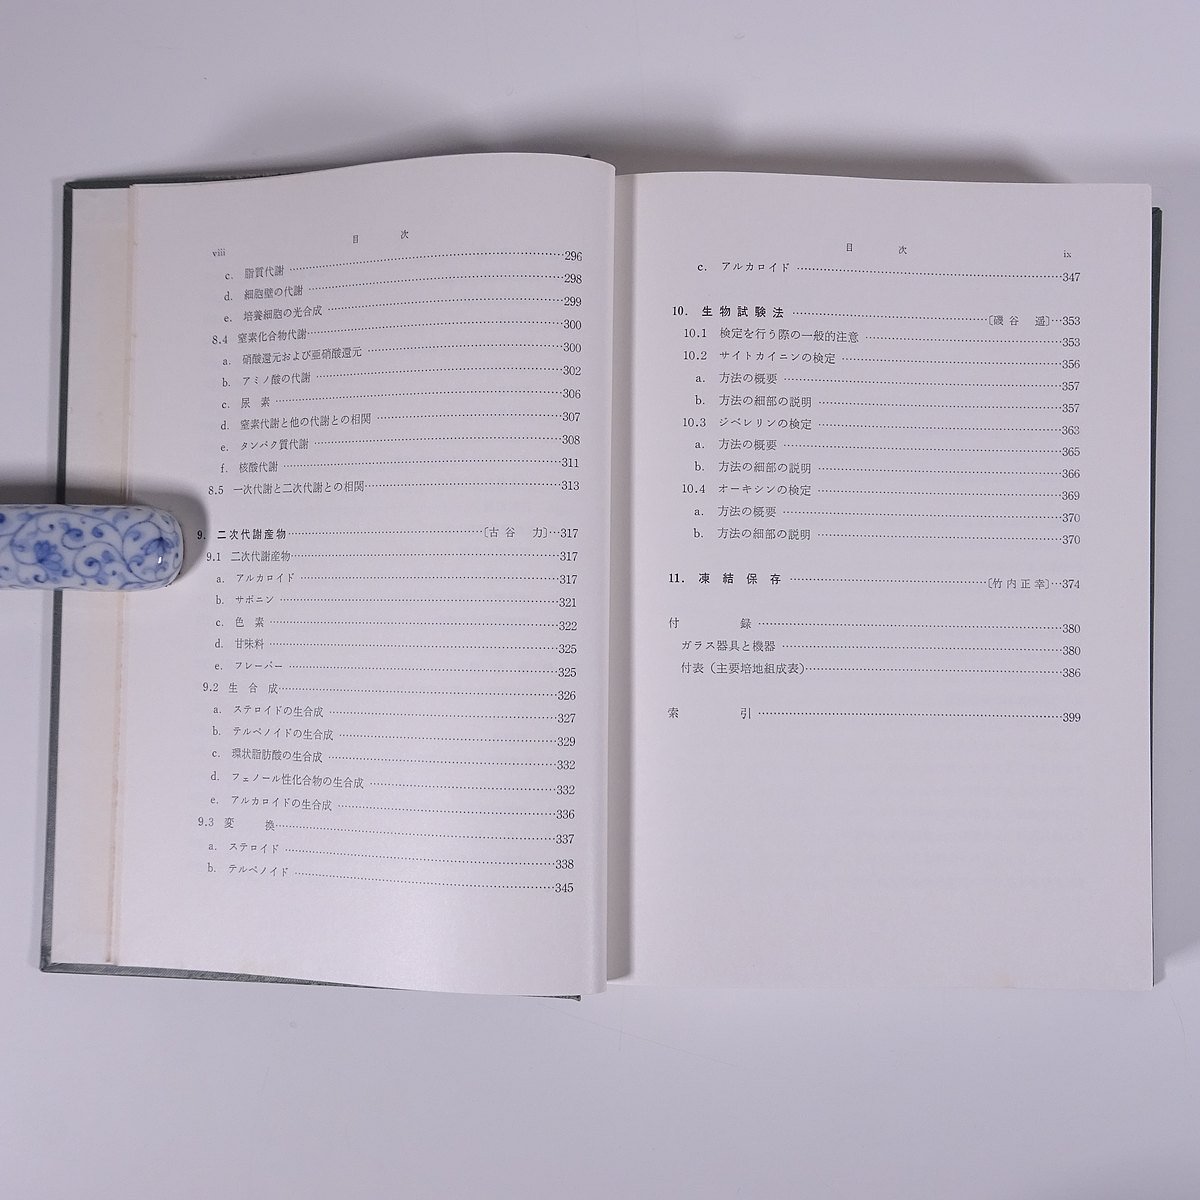 viii 目 次
c. 脂質代謝 296
d. 細胞壁の代謝 298
e. 培養細胞の光合成 299
8.4 窒素化合物代謝 300
a. 硝酸還元および亜硝酸還元 300
b. アミノ酸の代謝 302
c. 尿 素 306
d. 窒素代謝と他の代謝との相関 307
e. タンパク質代謝 308
f. 核酸代謝 311
8.5 一次代謝と二次代謝との相関 313
9. 二次代謝産物 〔古谷 力〕 317
9.1 二次代謝産物 317
a. アルカロイド 317
b. サポニン 321
c. 色 素 322
d. 甘味料 325
e. フレーバー 325
9.2 生 合 成 326
a. ステロイドの生合成 327
b. テルペノイドの生合成 329
c. 環状脂肪酸の生合成 332
d. フェノール性化合物の生合成 332
e. アルカロイドの生合成 336
9.3 変 換 337
a. ステロイド 338
b. テルペノイド 345
目 次 ix
c. アルカロイド 347
10. 生物試験法 〔磯谷 遥〕 353
10.1 検定を行う際の一般的注意 353
10.2 サイトカイニンの検定 356
a. 方法の概要 357
b. 方法の細部の説明 357
10.3 ジベレリンの検定 363
a. 方法の概要 365
b. 方法の細部の説明 366
10.4 オーキシンの検定 369
a. 方法の概要 370
b. 方法の細部の説明 370
11. 凍結保存 〔竹内正幸〕 374
付 録 380
ガラス器具と機器 380
付表（主要培地組成表） 386
索 引 399